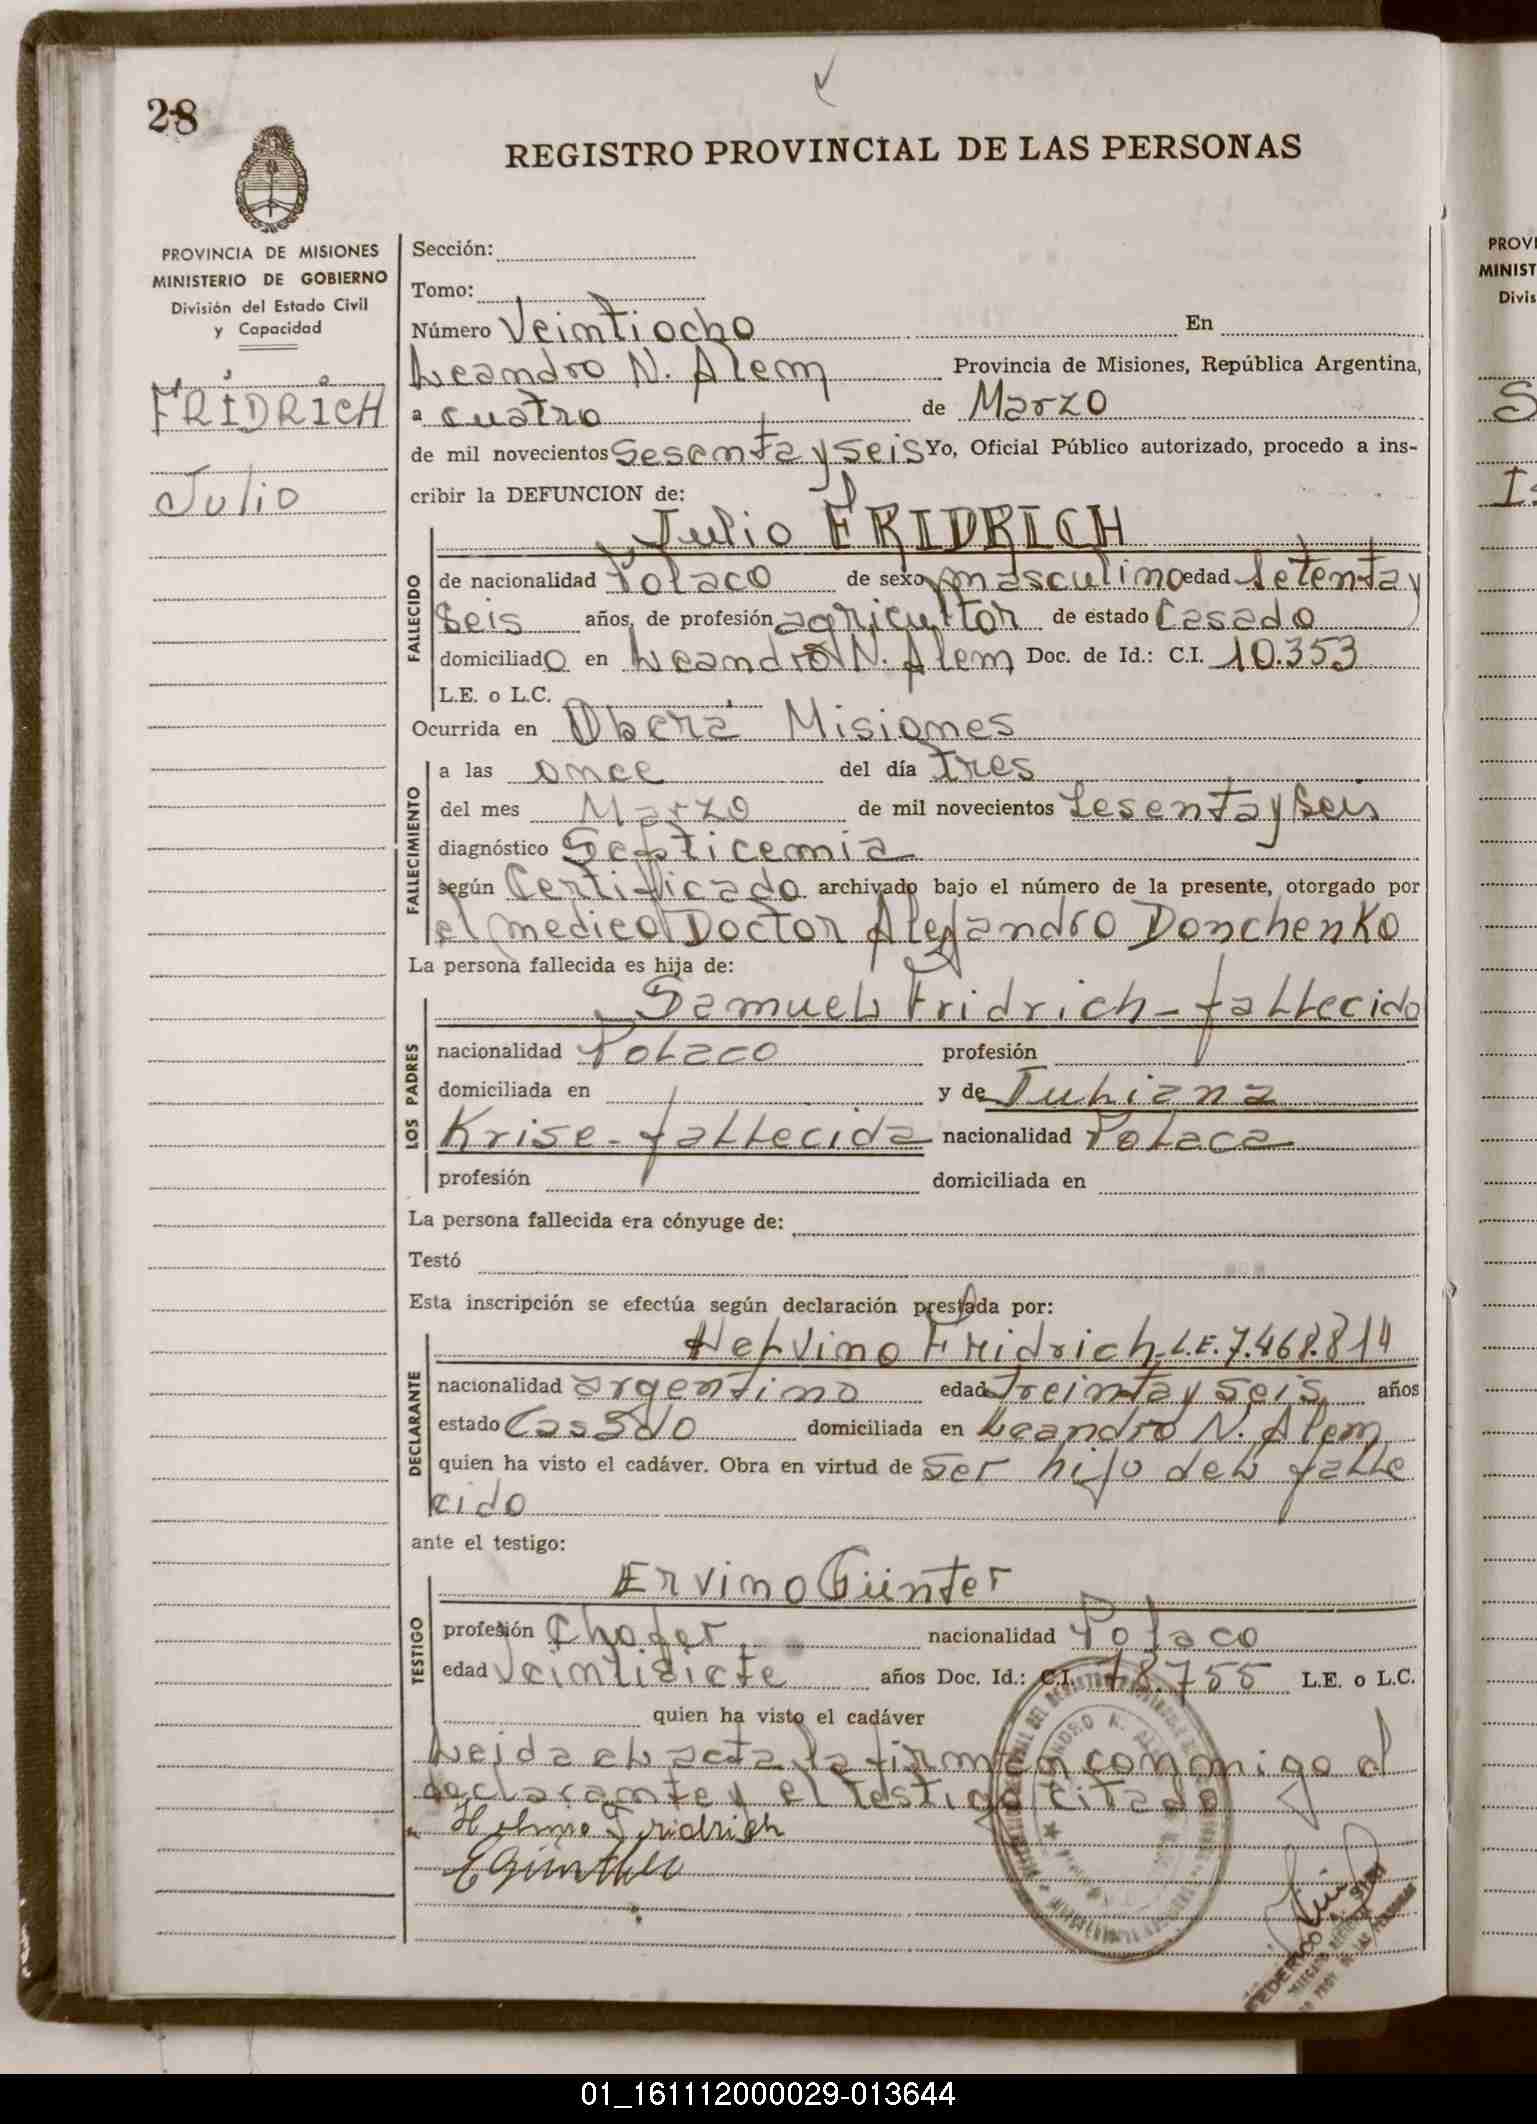 28
REGISTRO PROVINCIAL DE LAS PERSONAS
PROVINCIA DE MISIONES
MINISTERIO DE GOBIERNO
División del Estado Civil
y Capacidad
FRIDRICH
Julio
Sección:
Tomo:
Número Veintiocho En
Leandro N. Alem Provincia de Misiones, República Argentina,
a cuatro de Marzo
de mil novecientos Sesenta y seis Yo, Oficial Público autorizado, procedo a ins-
cribir la DEFUNCION de:
Julio FRIDRICH
FALLECIDO
de nacionalidad Polaco de sexo masculino edad Setenta y
Seis años, de profesión agricultor de estado Casado
domiciliado en Leandro N. Alem Doc. de Id.: C.I. 10.353
L.E. o L.C.
Ocurrida en Oberá Misiones
FALLECIMIENTO
a las once del día tres
del mes Marzo de mil novecientos Sesenta y Seis
diagnóstico Septicemia
según Certificado archivado bajo el número de la presente, otorgado por
el medico Doctor Alejandro Donchenko
La persona fallecida es hija de:
LOS PADRES
Samuel Fridrich - fallecido
nacionalidad Polaco profesión
domiciliada en y de Juliana
Krise - fallecida nacionalidad Polaca
profesión domiciliada en
La persona fallecida era cónyuge de:
Testó
Esta inscripción se efectúa según declaración prestada por:
DECLARANTE
Helvino Fridrich L.E. 7.468.814
nacionalidad argentino edad Treinta y seis años
estado Casado domiciliada en Leandro N. Alem
quien ha visto el cadáver. Obra en virtud de ser hijo del falle
cido
ante el testigo:
TESTIGO
Ervino Günter
profesión Chofer nacionalidad Polaco
edad veintisiete años Doc. Id.: C.I. 78.755 L.E. o L.C.
quien ha visto el cadáver
Leida el acta la firman conmigo el
declarante y el testigo citado
Fridrich
E Günther
PROVI
MINIST
Divis
S
01_161112000029-013644